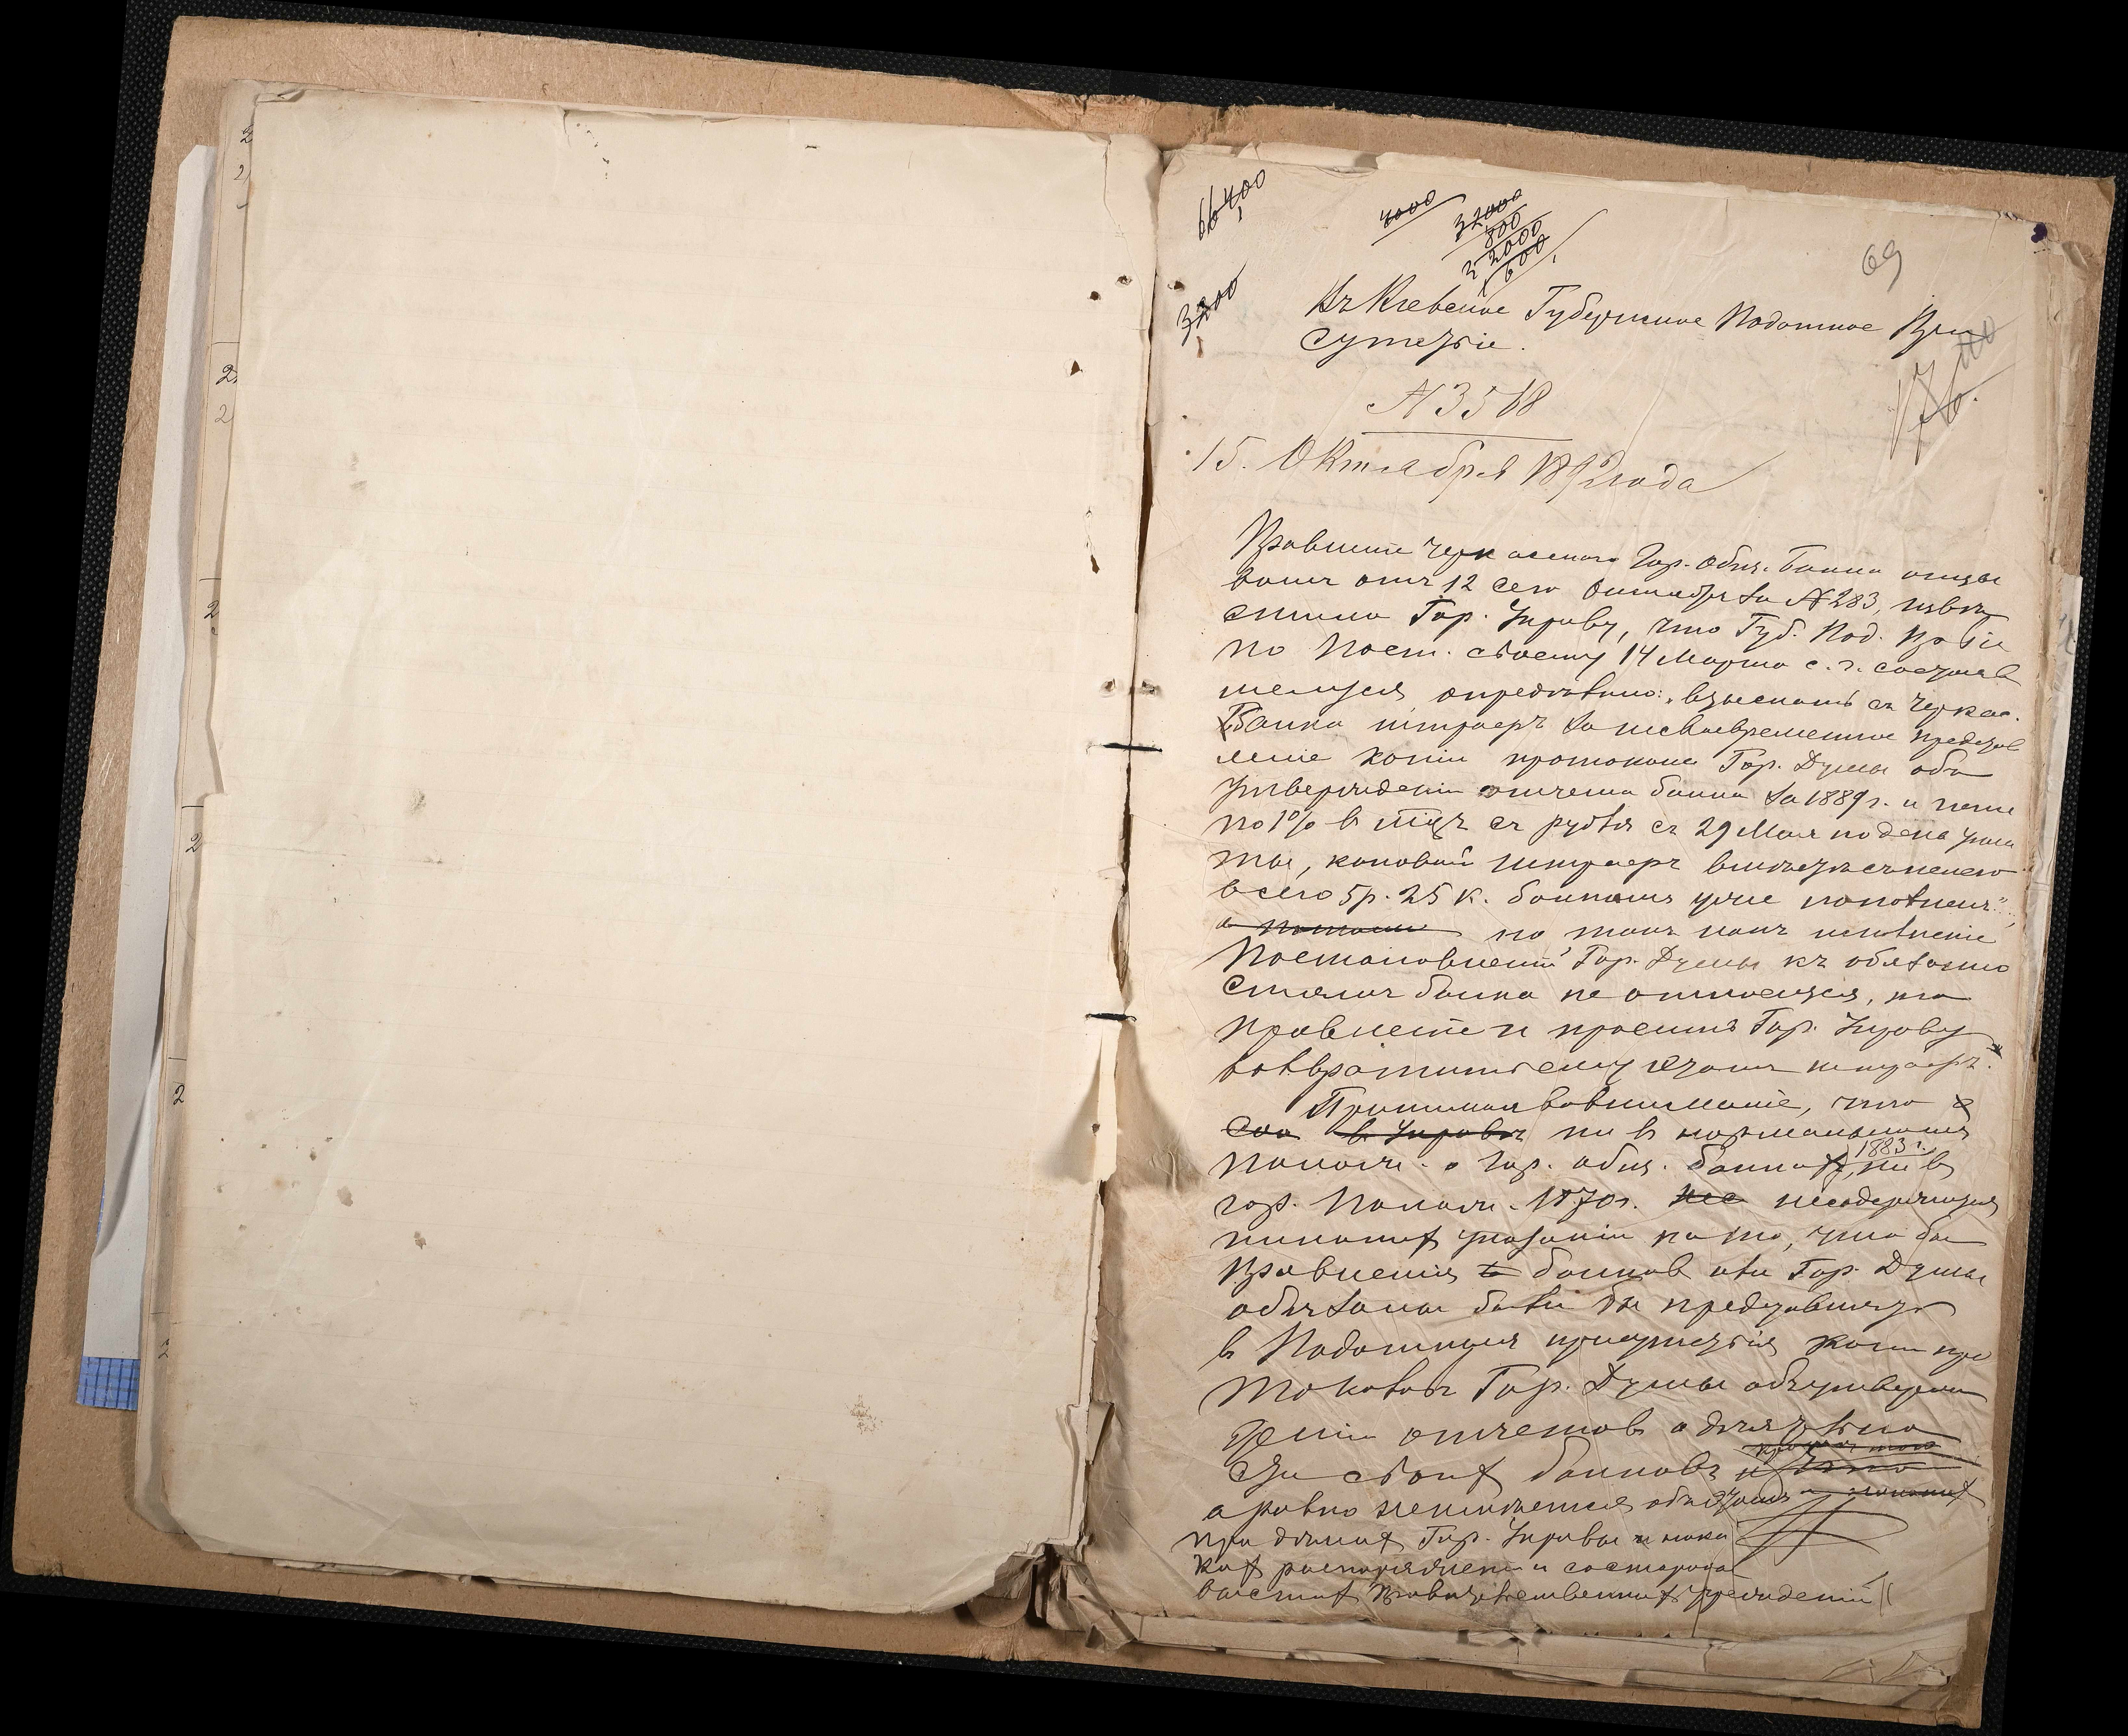 66400
4000
32000
800
22000
600
69
3200
Въ Кіевское Губернское Податное При
сутствіе.
N 3518
176.
15. Октября 1892 года
Правленіе Черкасскаго Гор. Общ. Банка отзы
вомъ отъ 12 сего Октября за N 283, извѣ
стило Гор. Управу, что Губ. Под. Пр‑віе
по пост. своему 14 Марта с. г. состояв
шемуся, опредѣлило: „взыскать съ Черкас.
Банка штрафъ за несвоевременное представ
леніе копіи протокола Гор. Думы объ
утвержденіи отчета банка за 1889 г. и пени
по 1% въ мѣс. съ рубля съ 29 Мая по день упла
ты, каковой штрафъ
всего 5 р. 25 к. банкомъ уже пополненъ",
а потому но такъ какъ исполненіе
Постановленій Гор. Думы къ обязанно
стямъ банка не относится, то
правленіе и проситъ Гор. Управу
возвратить ему этотъ штрафъ.
Принимая во вниманіе, что
въ Управѣ ни въ нормальномъ
полож. о Гор. общ. банкахъ 1883 г., ни въ
гор. Полож. 1870 г. не несодержится
никакихъ указаній на то, что бы
Правленія банковъ или Гор. Думы
обязаны были бы представлять
въ Податныя присутствія копіи про
токоловъ Гор. Думы объ утверж
деніи отчетовъ о дѣятельно
сти своихъ банковъ и
а равно неимѣется объ этомъ
при дѣлахъ Гор. Управы и ника
кихъ распоряженій со стороны
высшихъ Правительственныхъ учрежденій